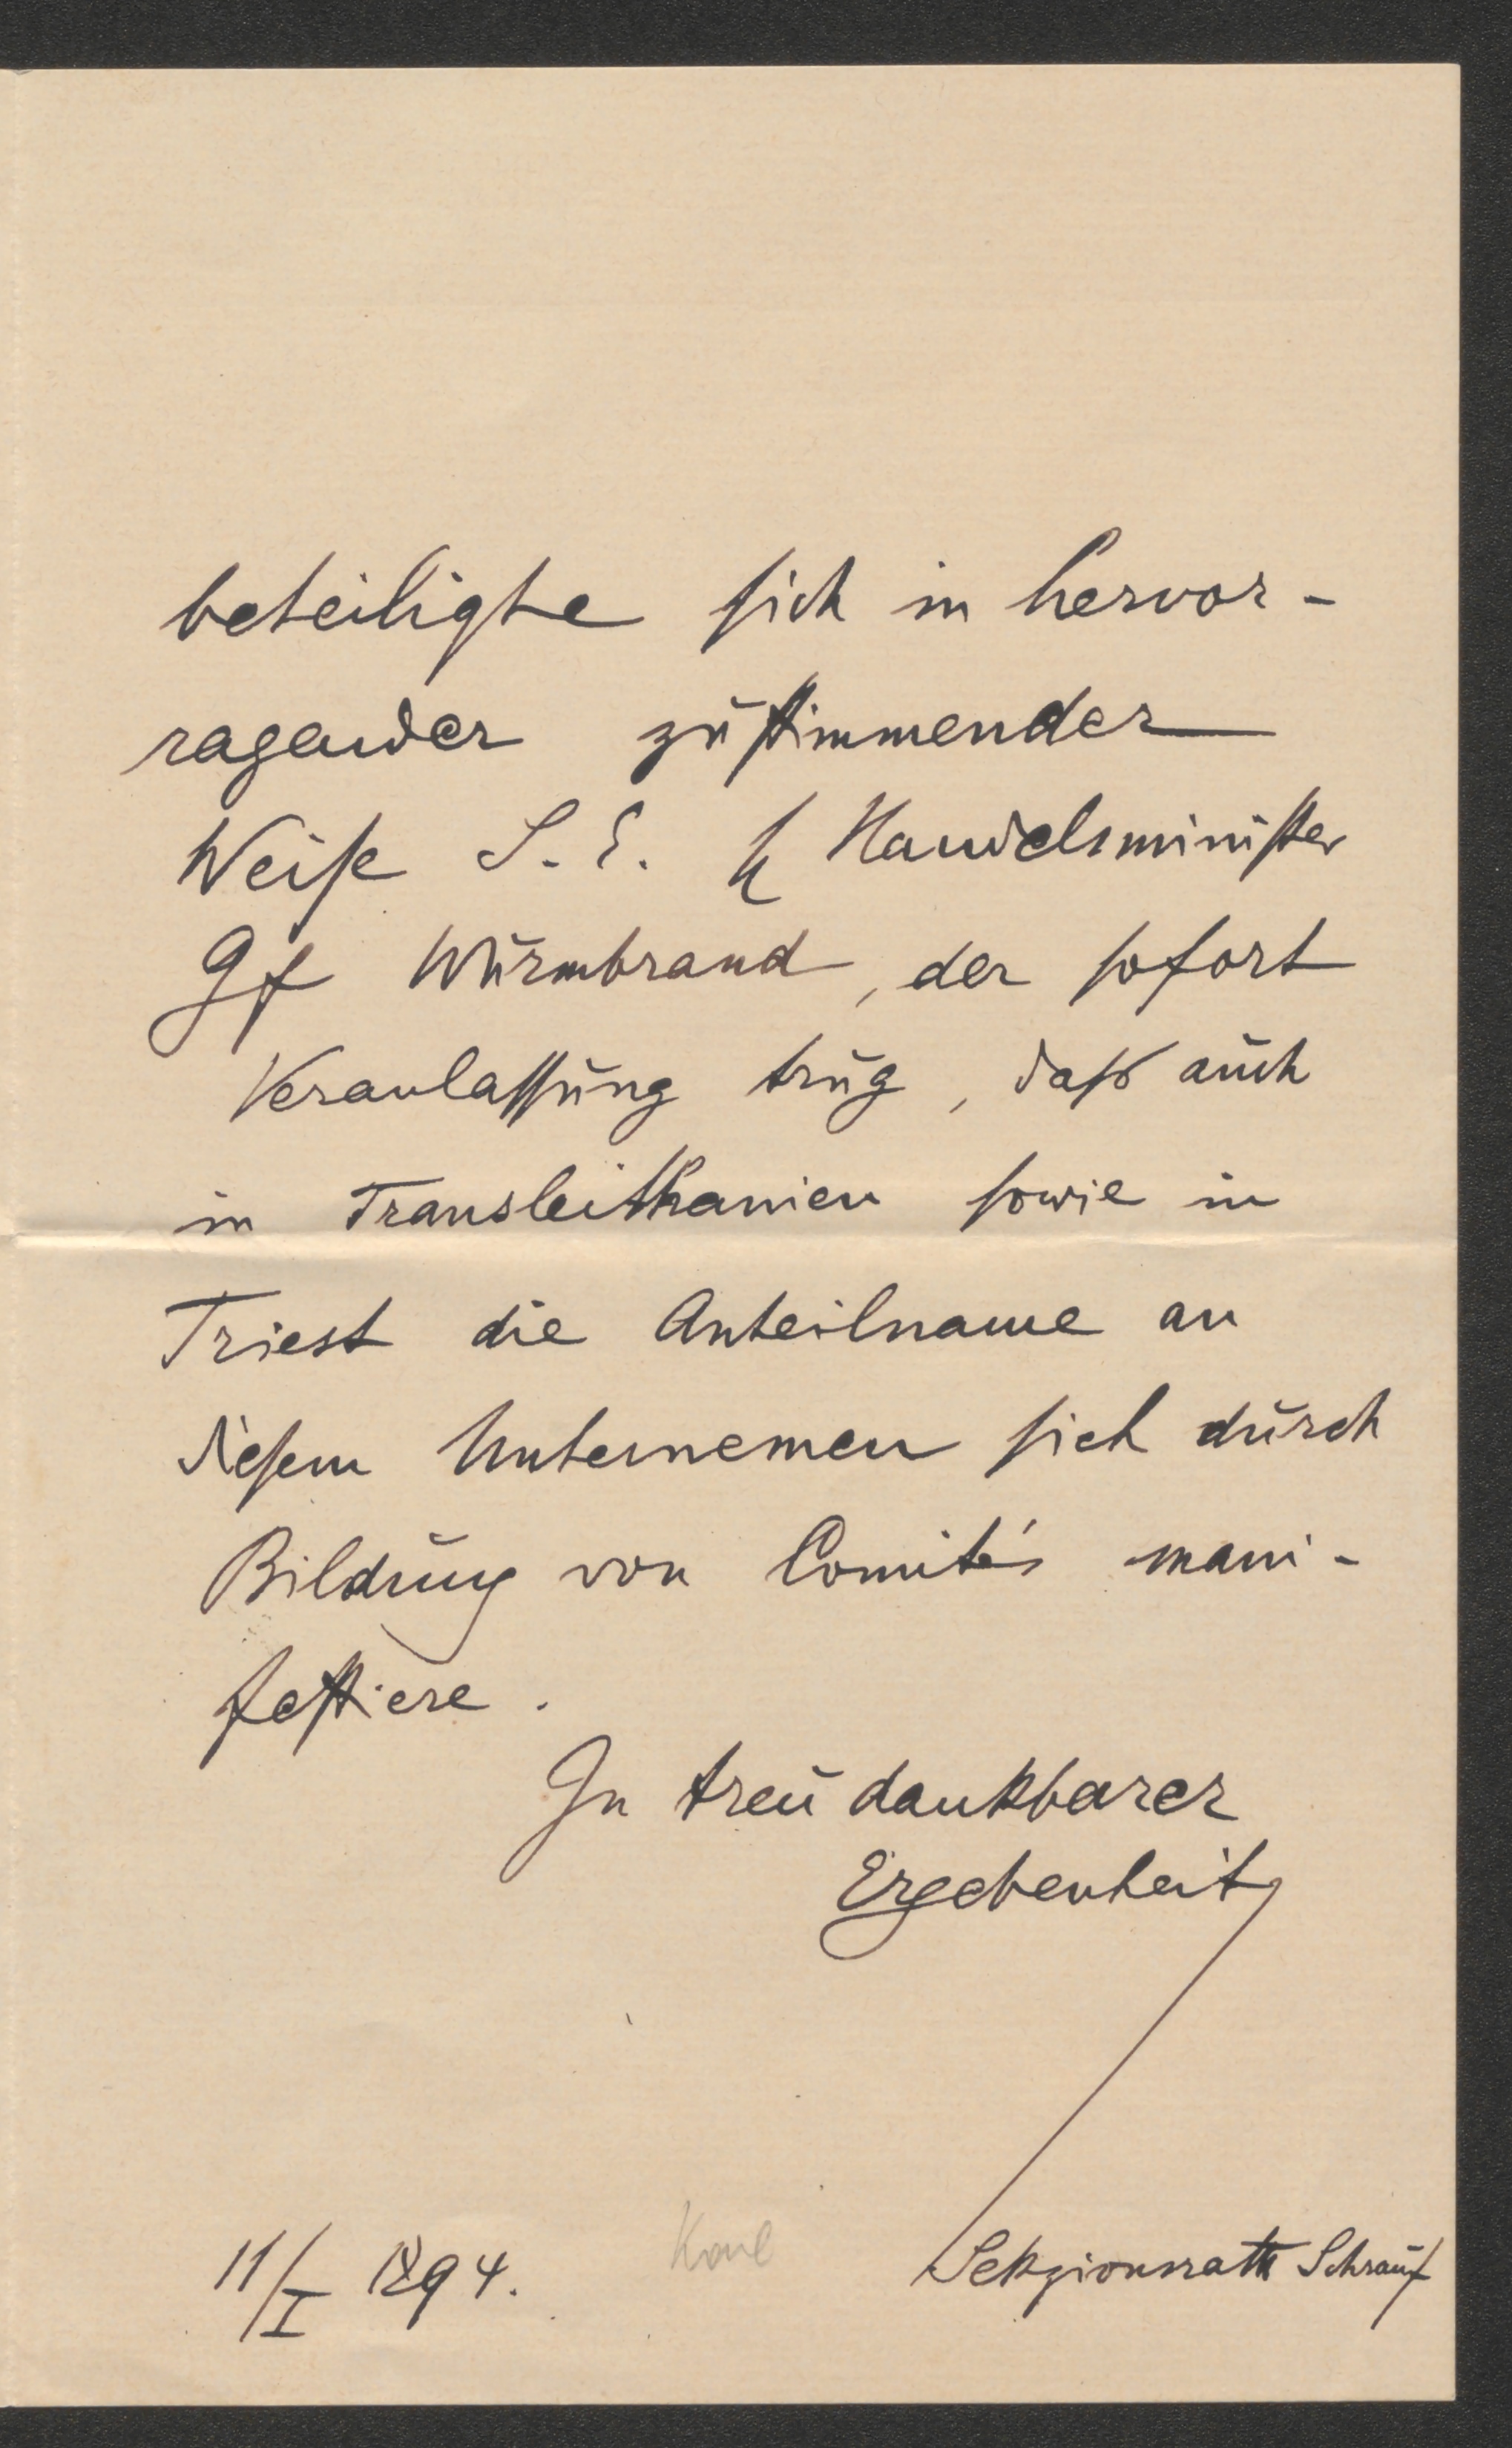 beteiligte sich in hervor-
ragender zustimmender
Weise S. E. H Handelsminister
Gf Wurmbrand, der sofort
Veranlassung trug, daß auch
in Transleithanien sowie in
Triest die Anteilname an
diesem Unternemen sich durch
Bildung von Comité's mani-
festiere.
In treu dankbarer
Ergebenheit
Sekzionsrath Schrauf
11/I 1894.
Karl